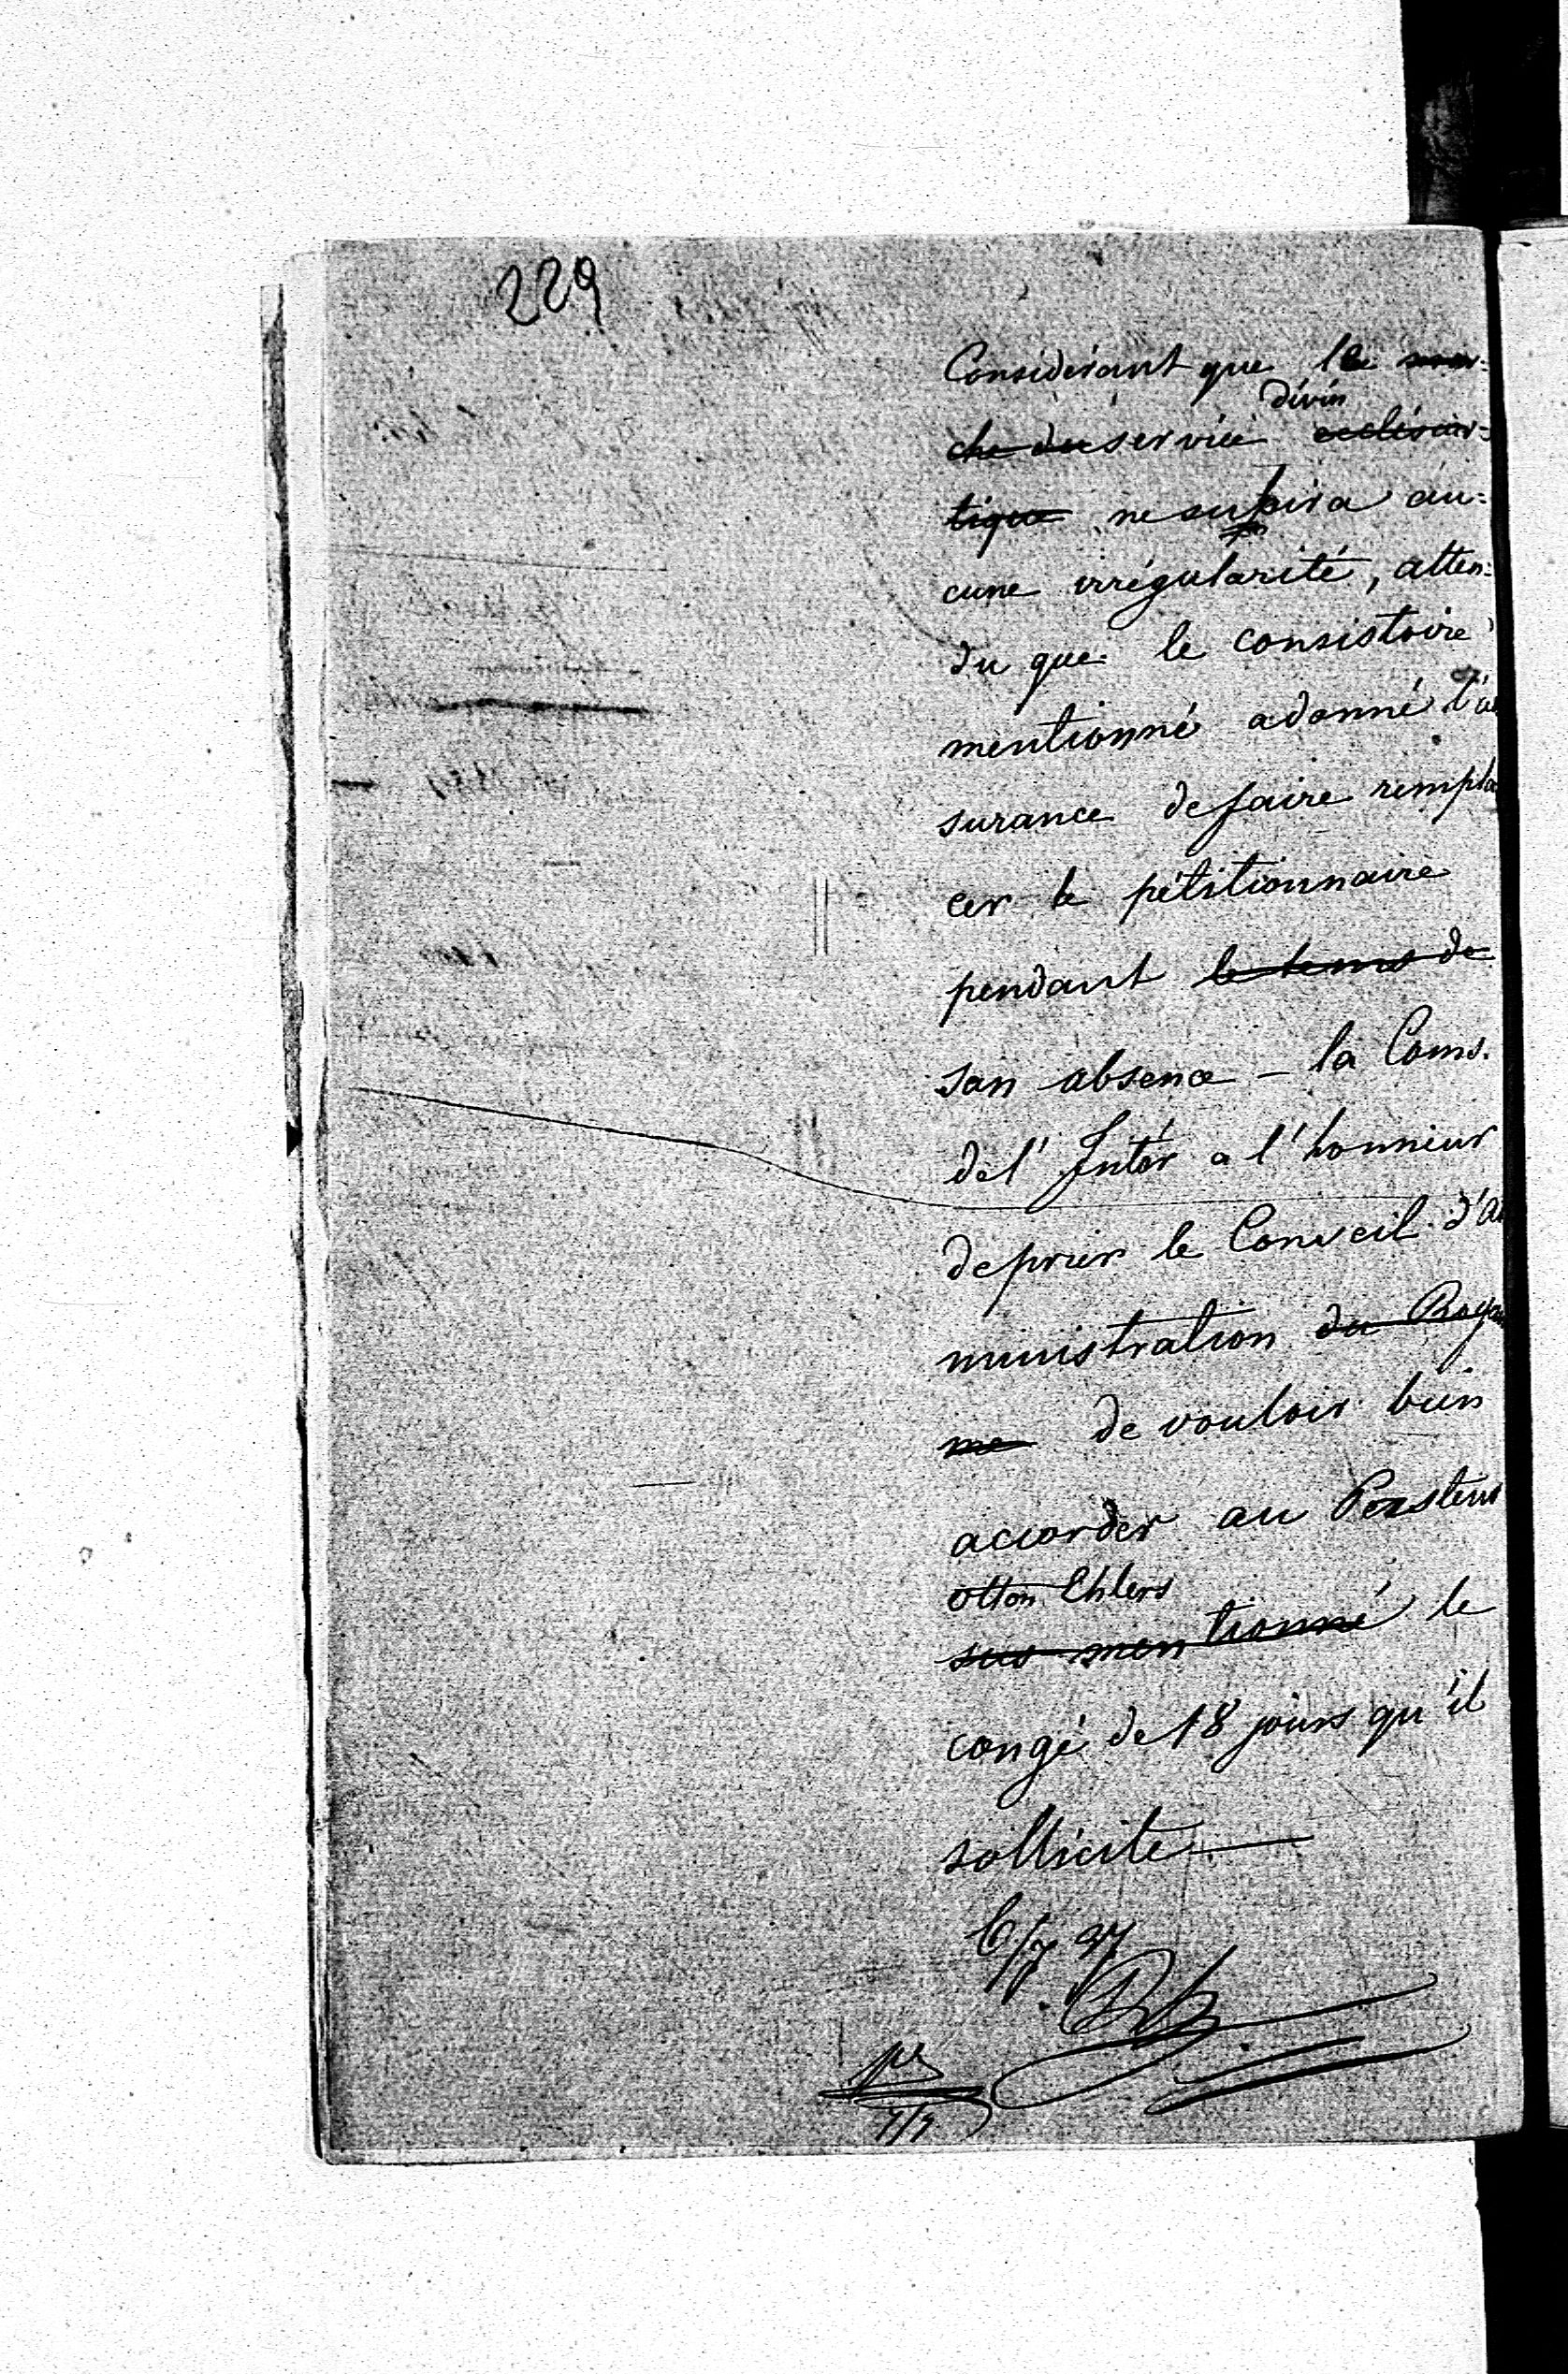 229
Considérant que le mar-
divin
che du service ecclésias-
tique ne subira au-
cune irrégularité, atten-
du que le consistoire
mentionné a donné l'as
surance de faire rempla
cer le pétitionnaire
pendant le tems de
san absence – la Coms.
de l'Intér a l'honneur
de prier le Conseil d'Ad
ministration du Royau
me de vouloir bien
accorder au Pasteur
Otton Ehlers
sus mentionné le
congé de 18 jours qu'il
sollicite
6/7 37
7/7